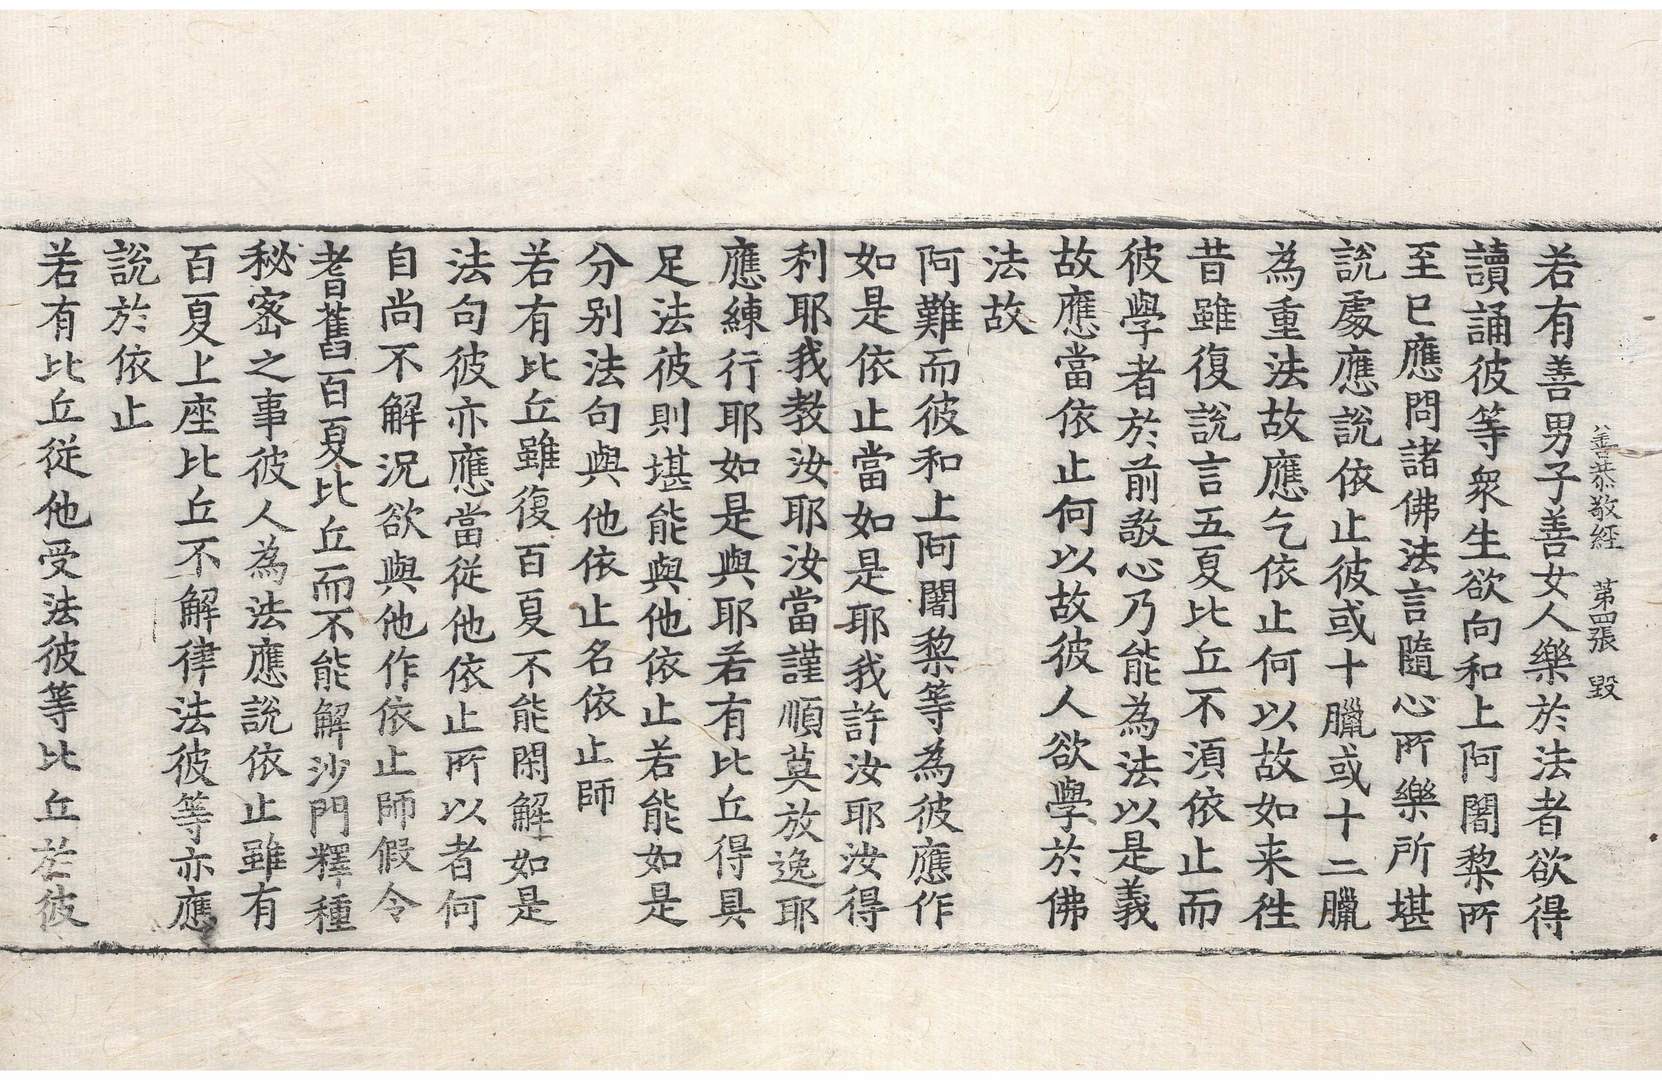 善恭敬經 第四張 毀
若有善男子善女人樂於法者欲得
讀誦彼等衆生欲向和上阿闍黎所
至已應問諸佛法言隨心所樂所堪
說處應說依止彼或十臘或十二臘
為重法故應乞依止何以故如来徃
昔雖復說言五夏比丘不須依止而
彼學者於前敬心乃能為法以是義
故應當依止何以故彼人欲學於佛
法故
阿難而彼和上阿闍黎等為彼應作
如是依止當如是耶我許汝耶汝得
利耶我教汝耶汝當謹順莫放逸耶
應練行耶如是與耶若有比丘得具
足法彼則堪能與他依止若能如是
分别法句與他依止名依止師
若有比丘雖復百夏不能閑解如是
法句彼亦應當從他依止所以者何
自尚不解況欲與他作依止師假令
耆舊百夏比丘而不能解沙門釋種
秘密之事彼人為法應說依止雖有
百夏上座比丘不解律法彼等亦應
說於依止
若有比丘從他受法彼等比丘於彼